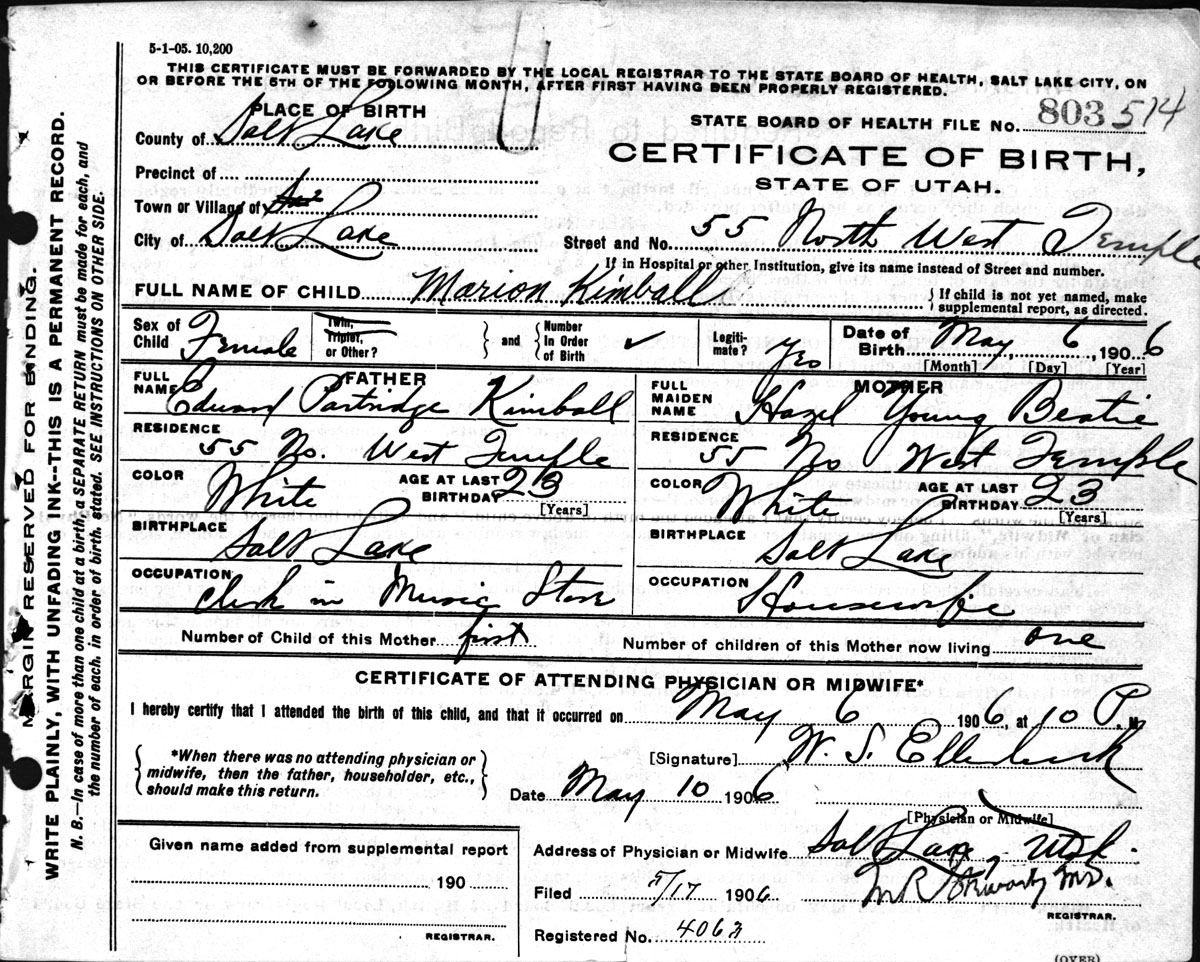 5-1-05. 10,200
THIS CERTIFICATE MUST BE FORWARDED BY THE LOCAL REGISTRAR TO THE STATE BOARD OF HEALTH, SALT LAKE CITY, ON
OR BEFORE THE 5TH OF THE FOLLOWING MONTH, AFTER FIRST HAVING BEEN PROPERLY REGISTERED.
PLACE OF BIRTH
County of Salt Lake
Precinct of
Town or Village of
City of Salt Lake
STATE BOARD OF HEALTH FILE No. 803 514
CERTIFICATE OF BIRTH,
STATE OF UTAH.
Street and No. 55 North West Temple
If in Hospital or other Institution, give its name instead of Street and number.
FULL NAME OF CHILD Marion Kimball
If child is not yet named, make
supplemental report, as directed.
Sex of Child Female
Twin, Triplet, or Other?
and
Number In Order of Birth ✓
Legiti-mate? Yes
Date of Birth May 6, 1906
[Month] [Day] [Year]
FATHER
FULL NAME Edward Partridge Kimball
RESIDENCE 55 No. West Temple
COLOR White AGE AT LAST BIRTHDAY 23
[Years]
BIRTHPLACE Salt Lake
OCCUPATION Clerk in Music Store
MOTHER
FULL MAIDEN NAME Hazel Young Beatie
RESIDENCE 55 No West Temple
COLOR White AGE AT LAST BIRTHDAY 23
[Years]
BIRTHPLACE Salt Lake
OCCUPATION Housewife
Number of Child of this Mother first Number of children of this Mother now living one
CERTIFICATE OF ATTENDING PHYSICIAN OR MIDWIFE*
I hereby certify that I attended the birth of this child, and that it occurred on May 6 1906, at 10 P. M
*When there was no attending physician or
midwife, then the father, householder, etc.,
should make this return.
[Signature] W. S. Ellerbeck
Date May 10 1906
[Physician or Midwife]
Given name added from supplemental report
190
REGISTRAR.
Address of Physician or Midwife Salt Lake, Utah.
Filed 5/17 1906 M R MD.
REGISTRAR.
Registered No. 4063
(OVER)
MARGIN RESERVED FOR BINDING.
WRITE PLAINLY, WITH UNFADING INK--THIS IS A PERMANENT RECORD.
N. B.—In case of more than one child at a birth, a SEPARATE RETURN must be made for each, and
the number of each, in order of birth, stated. SEE INSTRUCTIONS ON OTHER SIDE.